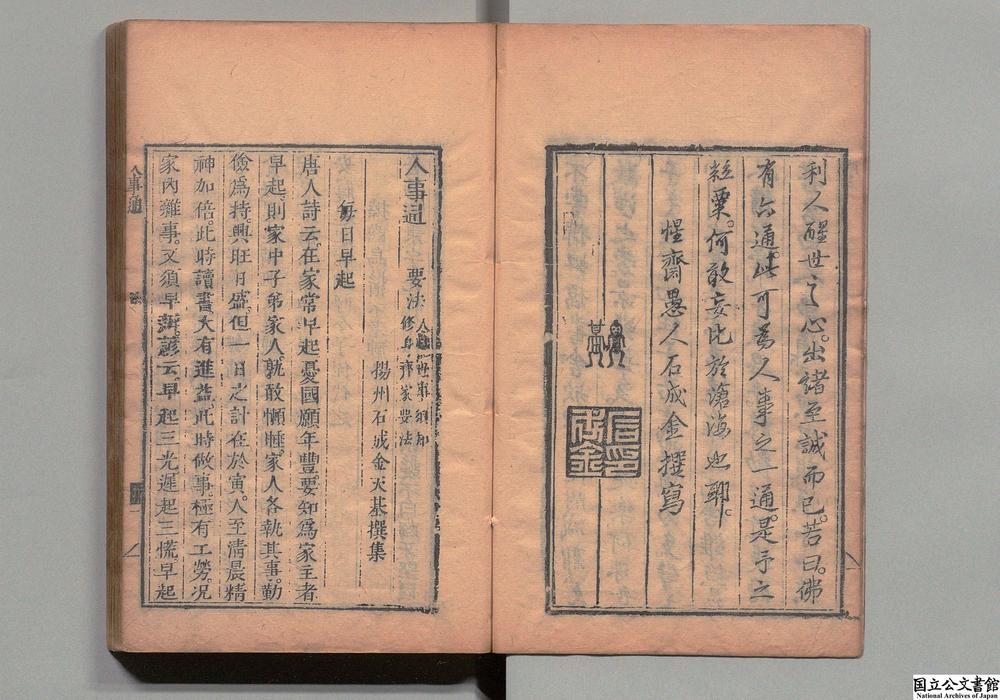 利人醒世之心。出諸至誠而已。若曰。佛
有六通。此可為人事之一通。是予之
粒粟。何敢妄比於滄海也耶。
惺齋愚人石成金撰寫
天
基
石成金
人事通
要法
人人世事須知
修身齊家要法
揚州石成金天基撰集
每日早起
唐人詩云。在家常早起憂國願年豐。要知為家主者
早起。則家中子弟家人。孰敢懶睡。家人各執其事。勤
儉為持。興旺日盛。但一日之計在於寅。人至清晨精
神加倍。此時讀書。大有進益。此時做事。極有工勞。況
家內雜事。又須早辦。諺云。早起三光遲起三慌。早起
人事通
国立公文書館
National Archives of Japan